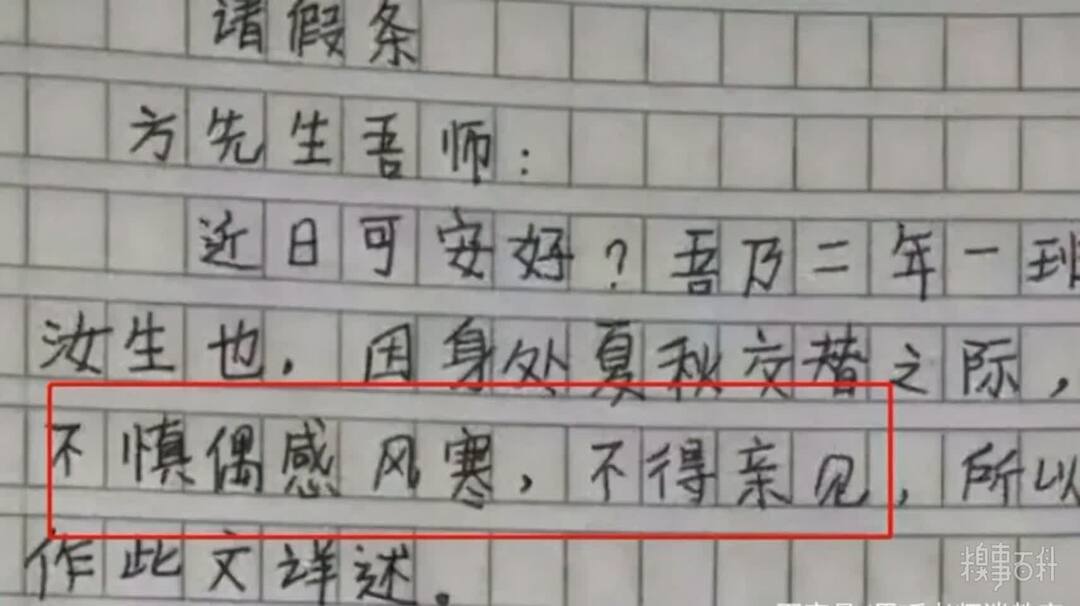 请假条
方先生吾师：
近日可安好？吾乃二年一班
汝生也，因身处夏秋交替之际，
不慎偶感风寒，不得亲见，所以
作此文详述。
糗事百科